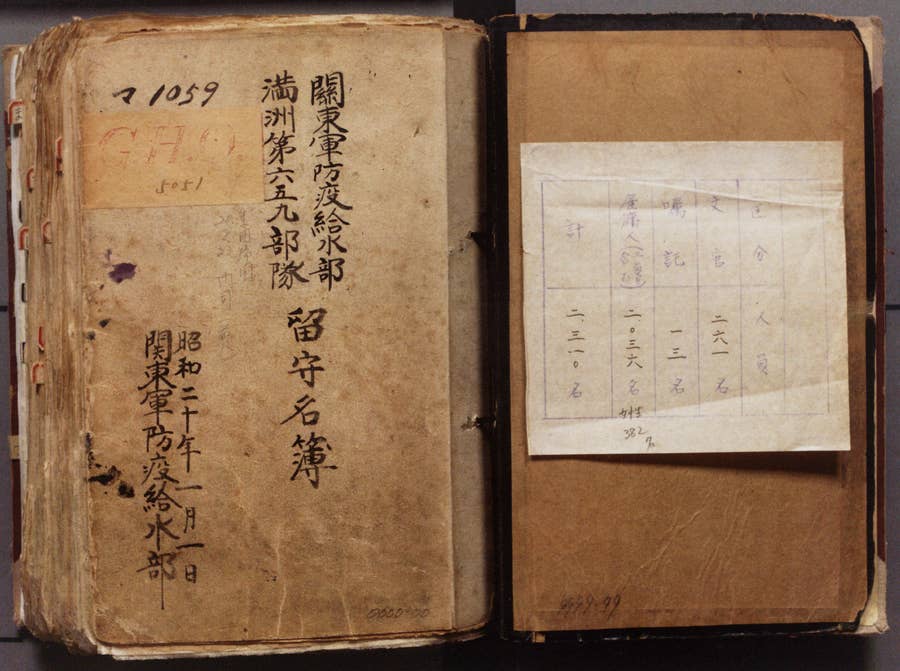 マ 1059
G.H.Q.
5051
關東軍防疫給水部
満洲第六五九部隊
留守名簿
昭和二十年一月一日
関東軍防疫給水部
0000-00
区分 人員
文官 二六一名
嘱託 一三名
雇傭人 二、〇三六名
計 二、三一〇名
女性
382
名
9999-99